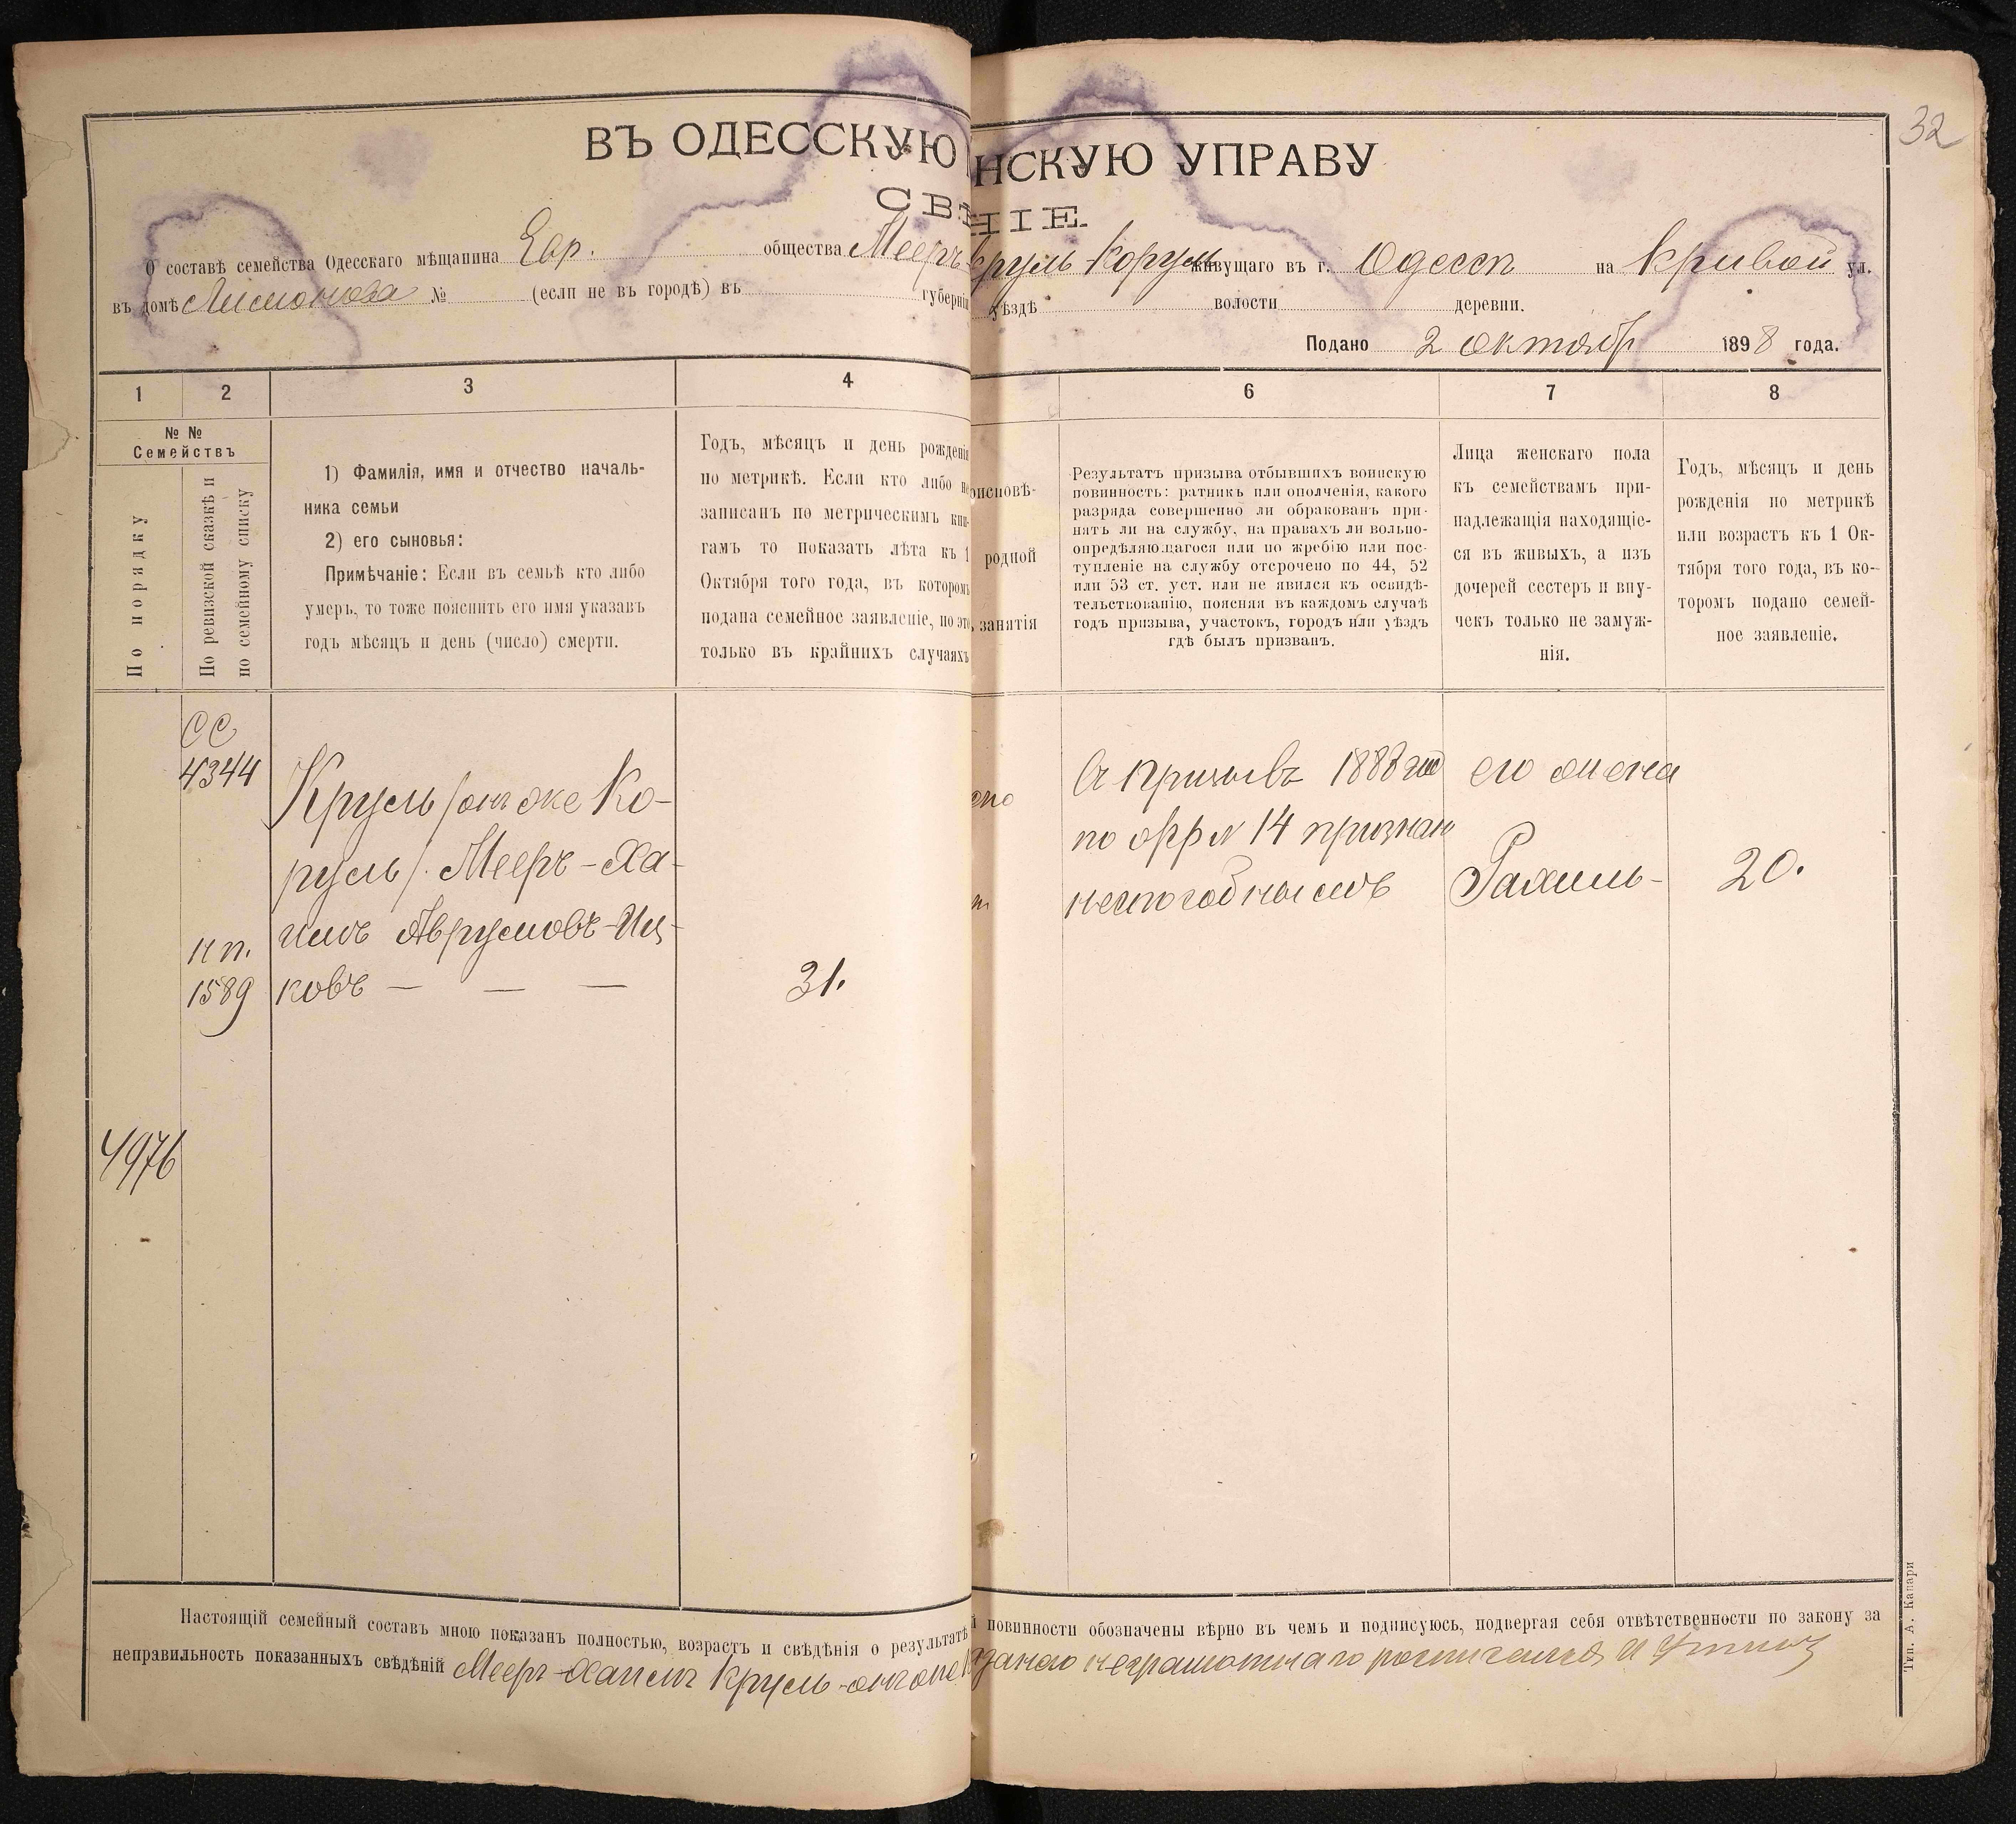 32
ВЪ ОДЕССКУЮ НСКУЮ УПРАВУ
СВѢ НІЕ
О составѣ семейства Одесскаго мѣщанина Евр. общества Мееръ Круль Коруль живущаго въ г. Одессѣ на Кривой ул.
въ домѣ № (если не въ городѣ) въ губерніи уѣздѣ волости деревни.
Подано 2 октябр 1898 года.
1 2 3 4 6 7 8
№ № Семействъ
По порядку
По ревизской сказкѣ и
по семейному списку
1) Фамилія, имя и отчество началь-
ника семьи
2) его сыновья:
Примѣчаніе: Если въ семьѣ кто либо
умеръ, то тоже пояснить его имя указавъ
годъ мѣсяцъ и день (число) смерти.
Годъ, мѣсяцъ и день рожденія
по метрикѣ. Если кто либо не
записанъ по метрическимъ кни-
гамъ то показать лѣта къ 1
Октября того года, въ которомъ
подана семейное заявленіе, но это
только въ крайнихъ случаяхъ
оисповѣ-
родной
занятія
Результатъ призыва отбывшихъ воинскую
повинность: ратникъ или ополченія, какого
разряда совершенно ли обракованъ при-
нятъ ли на службу, на правахъ ли вольно-
опредѣляющагося или по жребію или пос-
тупленіе на службу отсрочено по 44, 52
или 53 ст. уст. или не явился къ освидѣ-
тельствованію, поясняя въ каждомъ случаѣ
годъ призыва, участокъ, городъ или уѣздъ
гдѣ былъ призванъ.
Лица женскаго пола
къ семействамъ при-
надлежащія находящіе-
ся въ живыхъ, а изъ
дочерей сестеръ и вну-
чекъ только не замуж-
нія.
Годъ, мѣсяцъ и день
рожденія по метрикѣ
или возрастъ къ 1 Ок-
тября того года, въ ко-
торомъ подано семей-
ное заявленіе.
СС
4344
нп.
1589
4976
Круль /онъ же Ко-
руль/. Мееръ-Ха-
имъ Аврумовъ-Иц-
ковъ — — —
31.
призывѣ 1888 год
по № 14 признан
неспособнымъ
его жена
Рахиль-
20.
Настоящій семейный составъ мною показанъ полностью, возрастъ и свѣдѣнія о результатѣ й повинности обозначены вѣрно въ чемъ и подписуюсь, подвергая себя отвѣтственности по закону за
неправильность показанныхъ свѣдѣній Мееръ-Хаимъ Круль-онъ же неграмотнаго росписался
Тип. А. Капари